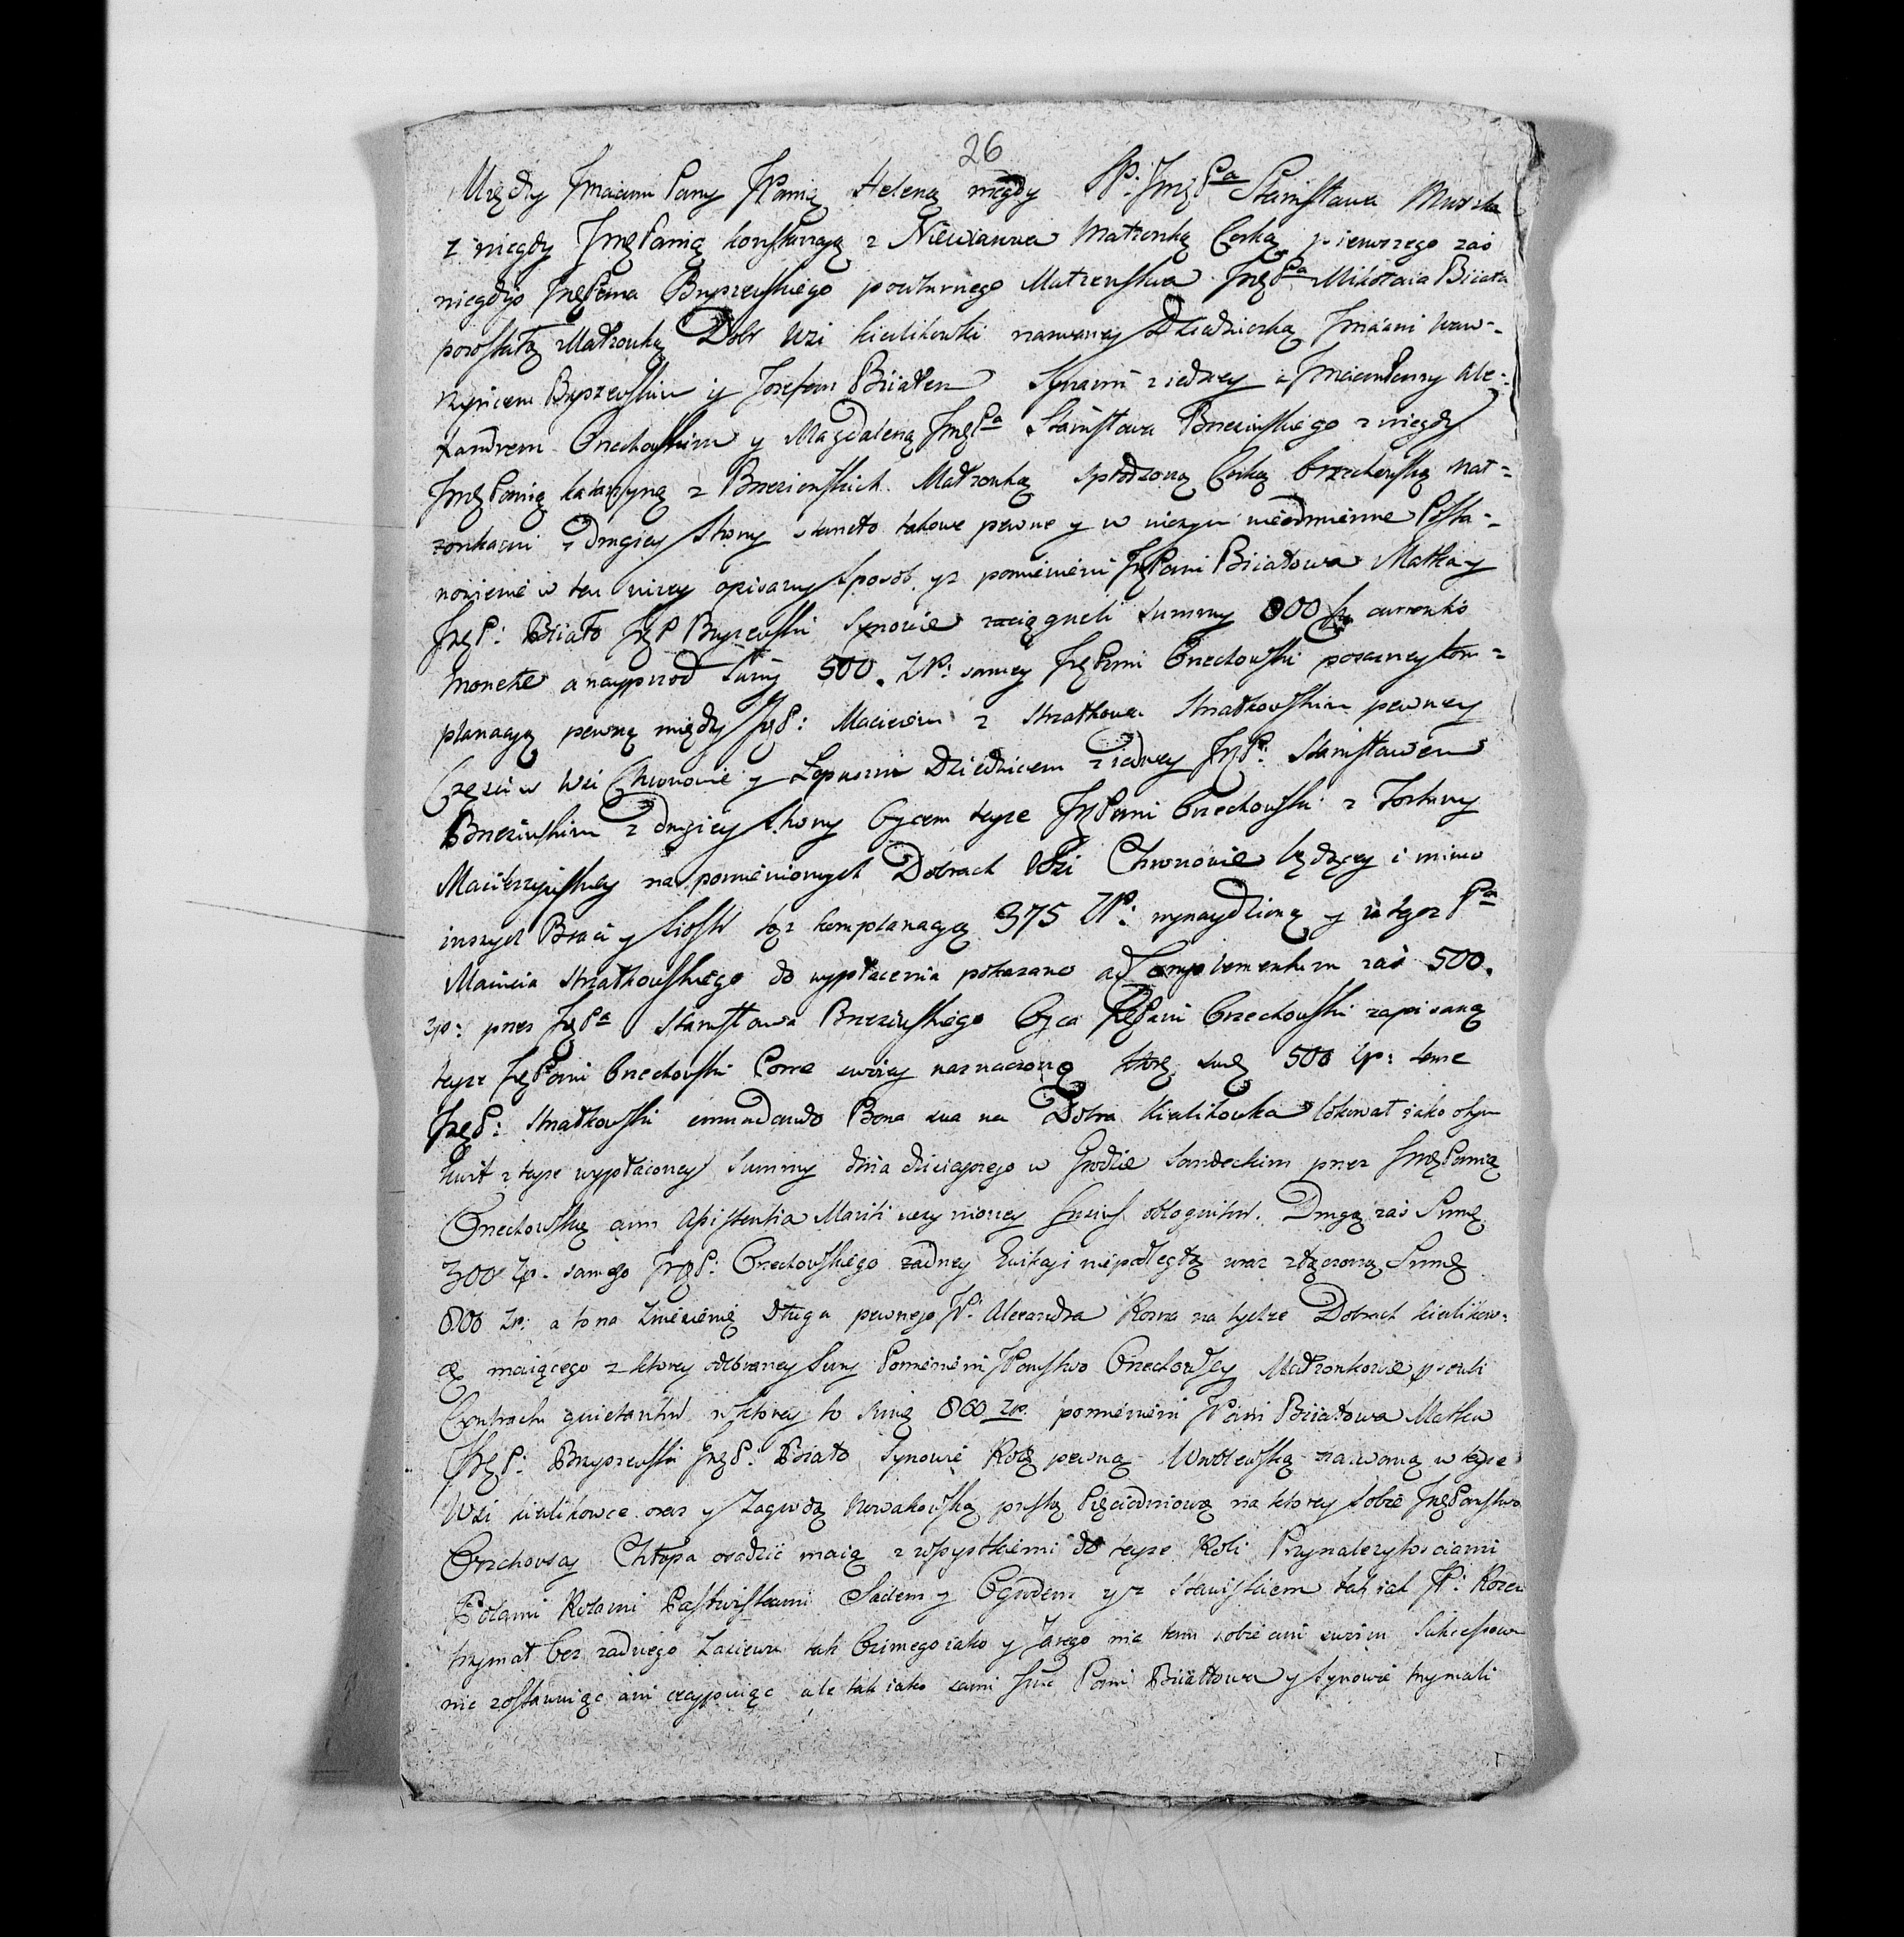 26
Między Jmciami Pany JPanią Heleną niegdy ŚP: JmęPa Stanisława
z niegdy JmęPanią konstancyą z Niewiarowa Matronką Corką, pierwszego zaś
niegdyś JmęPana Bryzewskiego powturnego Matzenstwa JmęPa Mikołaia Biiała
pozostałą Małzonką Dobr Wsi kiulikowki nazwaney Dziedziczką Jmciani Waw-
rzyńcem Bryzewskim y Jozefem Białem Synami z iedney a Jmciami Pany Ale-
xandrem Orzechowskim y Magdaleną JmęPa Stanisława Brzezinskiego z niegdy
JmęPanią katarzyną z Brzezinskich Małzonką spłodzoną Corką Orzechowską Mał-
zonkami z drugiey strony stanęło takowe pewne y w niczym nieodmienne Posta-
nowienie w ten nizey opisany sposob yz pomienieni JmęPani Biiałowa Matka y
JmęP: Biiało JmęP Bryzewski Synowie zaciągneli summy 800 currentis
Monetæ a nayprzod Sumy 500. ZłP: samey JmęPani Orzechowski posazney kom-
planacyą pewną między JmęP: Maciejem z Strzałkowa Strzałkowskim pewney
Części w Wsi Chronowie y Łopuszni Dziedzicem z iedney JmęP: Stanisławem
Brzezinskim z drugiey strony Oycem teyze JmęPani Orzechowski z Fortuny
Macierzynskiey na pomienionych Dobrach Wsi Chronowie będącey i mimo
inszych Braci y Siostr tąz komplanacyą 375 ZłP: wynaydzioną y za tegoz Pa
Macieia Strzałkowskiego do wypłacenia pokazano ad Complementum zaś 500.
zp: przez JmęPa Stanisława Brzezinskiego Oyca JmęPani Orzechowski zapisaną
teyze JmęPani Orzechowski Corce swoiey naznaczoną ktorą Sumę 500 zp: tenze
JmęP: Strzałkowski emundando Bona sua na Dobra Kiulikowka lokował iako otym
kwit z teyze wypłaconey Summy dnia dzisieyszego w Grodzie Sandeckim przez JmęPanią
Orzechowską cum Assistentia Mariti uczyniony obloquitur. Drugą zaś Sumę
300 Zp. samego JmęP: Orzechowskiego zadney Ewikcyi niepodległą wraz złączoną Sumę
800 Zp: a to na zniesienie Długu pewnego JP: Alexandra Rozna na tychze Dobrach kiulikow-
ce maiącego z ktorey odebraney Sumy Pomienieni JPaństwo Orzechowscy Małzonkowie
Contractu quietantur w ktorey to sumie 800 Zp. pomienieni JPani Biiałowa Matka
JmęP: Bryzewski JmęP: Biiało Synowie Rolę pewną nazwaną w teyze
Wsi kiulikowce oraz y Zagrodą Nowakowską pustą Pięciodniową na ktorey sobie JmęPaństwo
Orzechowscy Chłopa osadzić maią z wszystkiemi do teyze Roli Przynaleznościami
Polami Rolami Pastwiskami Sadem y Ogrodem y z Stawiskiem tak iak JP: Rozen
trzymał bez zadnego zasiewu tak Ozimego iako y Jarego nie tam sobie ani swoim Sukcessorom
nie zostawuiąc ani excypuiąc ale tak iako sami Jmć Pani Biiałłowa y synowie trzymali